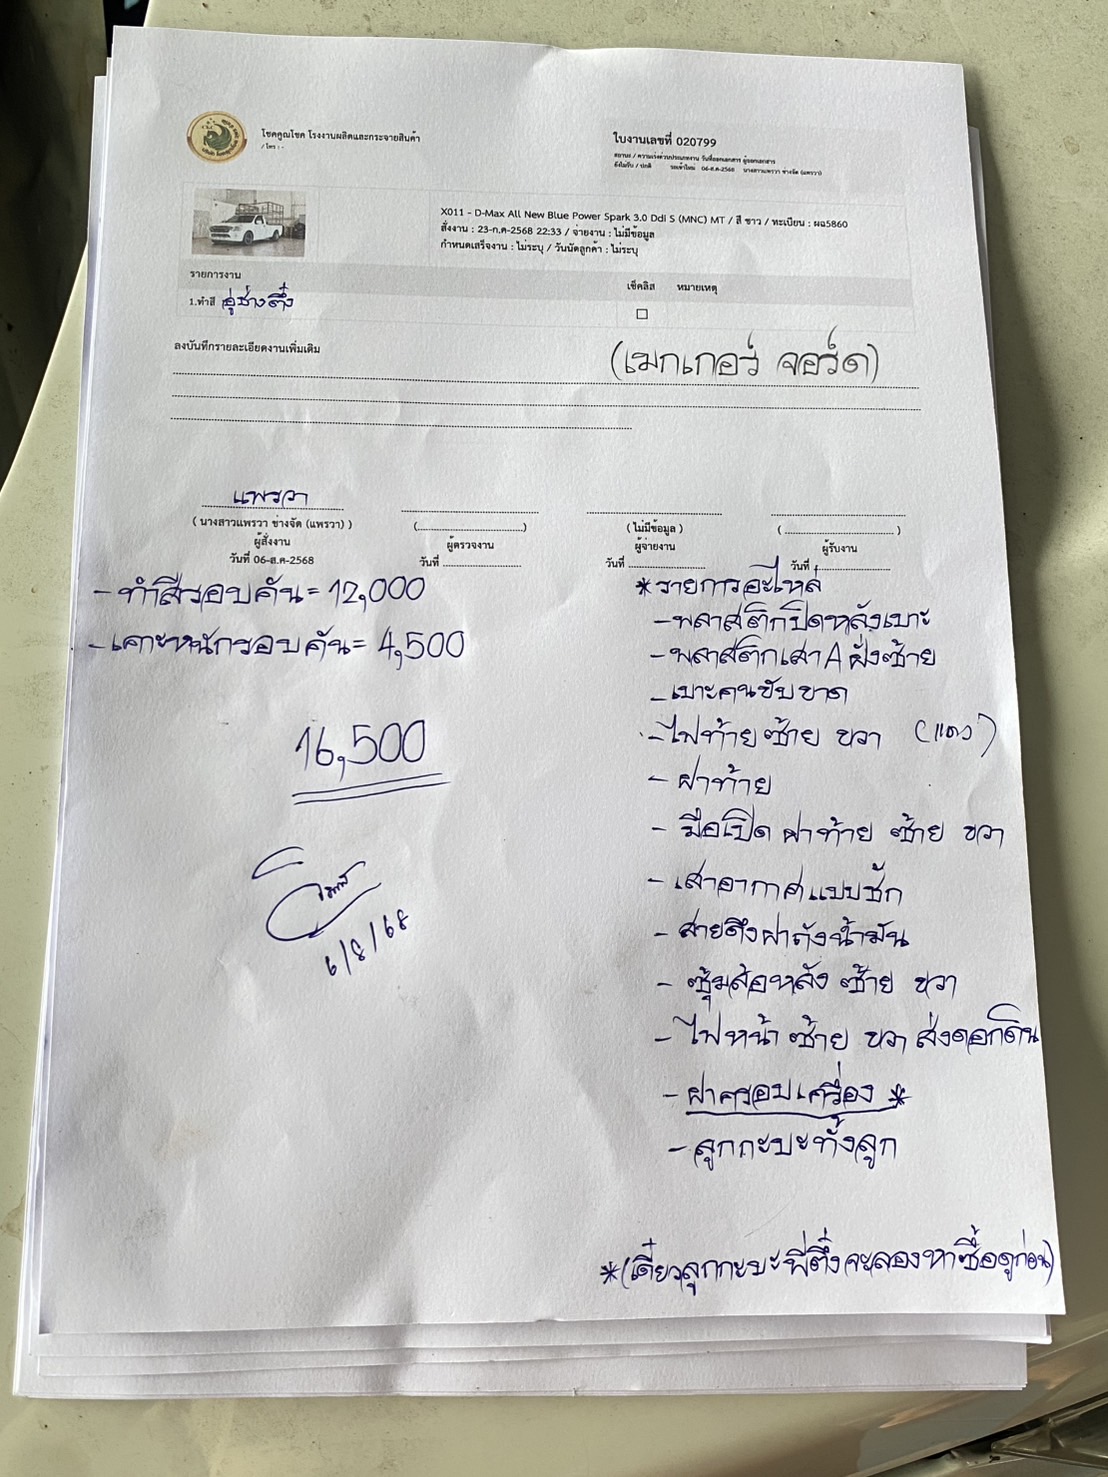 โชคคูณโชค โรงงานผลิตและกระจายสินค้า
/ โทร : -
ใบงานเลขที่ 020799
สถานะ / ความเร่งด่วนประเภทงาน วันที่ออกเอกสาร ผู้ออกเอกสาร
06-ส.ค-2568 นางสาวแพรวา ช่างจัด (แพรวา)
X011 - D-Max All New Blue Power Spark 3.0 Ddi S (MNC) MT / สี ขาว / ทะเบียน : ผฉ5860
สั่งงาน : 23-ก.ค-2568 22:33 / จ่ายงาน : ไม่มีข้อมูล
กำหนดเสร็จงาน : ไม่ระบุ / วันนัดลูกค้า : ไม่ระบุ
รายการงาน เช็คลิส หมายเหตุ
1.ทำสี อู่ช่างตึ๋ง
ลงบันทึกรายละเอียดงานเพิ่มเติม
(เมกเกอร์ จอร์ด)
แพรวา
( นางสาวแพรวา ช่างจัด (แพรวา) ) (ไม่มีข้อมูล )
ผู้สั่งงาน ผู้ตรวจงาน ผู้จ่ายงาน ผู้รับงาน
วันที่ 06-ส.ค-2568 วันที่ วันที่ วันที่
- ทำสีรอบคัน = 12,000
- เคาะหนักรอบคัน = 4,500
16,500
6/8/68
*รายการอะไหล่
- พลาสติกปิดหลังเบาะ
- พลาสติกเสา A ฝั่งซ้าย
- เบาะคนขับขาด
- ไฟท้าย ซ้าย ขวา (แดง)
- ฝาท้าย
- มือเปิด ฝาท้าย ซ้าย ขวา
- เสาอากาศแบบชัก
- สายดึงฝาถังน้ำมัน
- ซุ้มล้อหลัง ซ้าย ขวา
- ไฟหน้า ซ้าย ขวา ส่งดอกดิน
- ฝาครอบเครื่อง *
- ลูกกะบะทั้งลูก
*(เดี๋ยวลูกกะบะพี่ตึ๋งจะลองหาซื้อดูก่อน)